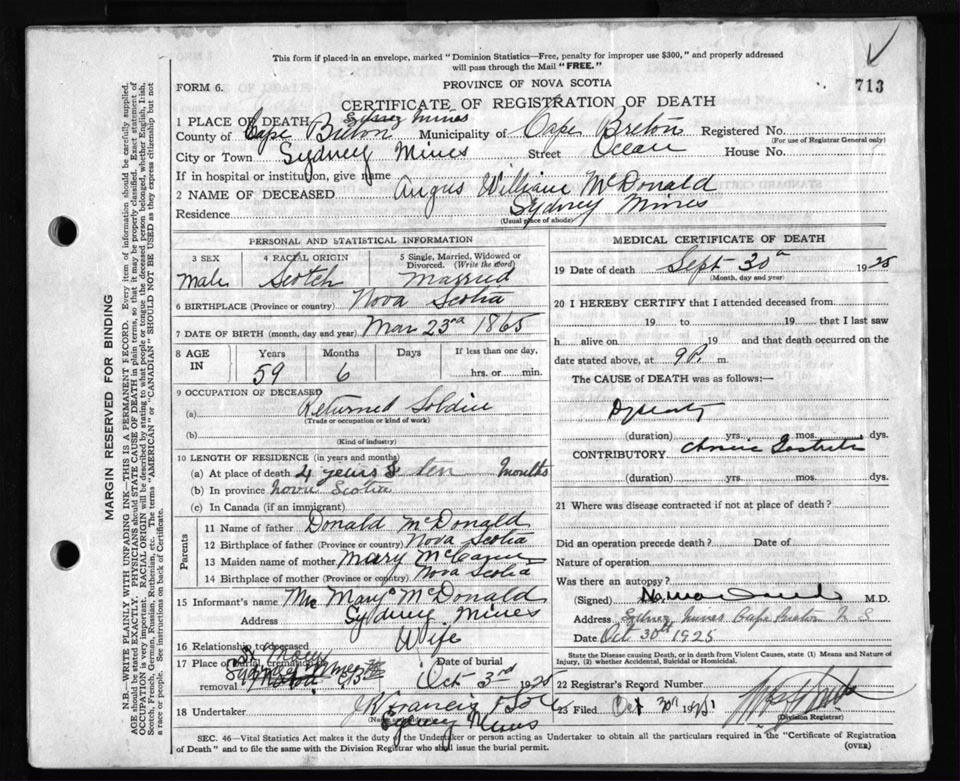 This form if placed in an envelope, marked "Dominion Statistics—Free, penalty for improper use $300," and properly addressed
will pass through the Mail "FREE."
FORM 6.
PROVINCE OF NOVA SCOTIA
713
CERTIFICATE OF REGISTRATION OF DEATH
1 PLACE OF DEATH Sydney Mines
County of Cape Breton Municipality of Cape Breton Registered No.
(For use of Registrar General only)
City or Town Sydney Mines Street Ocean House No.
If in hospital or institution, give name
2 NAME OF DECEASED Angus William McDonald
Residence Sydney Mines
(Usual place of abode)
PERSONAL AND STATISTICAL INFORMATION
3 SEX 4 RACIAL ORIGIN 5 Single, Married, Widowed or
Divorced. (Write the word)
Male Scotch Married
6 BIRTHPLACE (Province or country) Nova Scotia
7 DATE OF BIRTH (month, day and year) Mar 23rd 1865
8 AGE IN Years Months Days If less than one day,
59 6 hrs. or min.
9 OCCUPATION OF DECEASED
(a) Returned Soldier
(Trade or occupation or kind of work)
(b)
(Kind of industry)
10 LENGTH OF RESIDENCE (in years and months)
(a) At place of death 4 years & ten Months
(b) In province Nova Scotia
(c) In Canada (if an immigrant)
Parents
11 Name of father Donald McDonald
12 Birthplace of father (Province or country) Nova Scotia
13 Maiden name of mother Mary
14 Birthplace of mother (Province or country) Nova Scotia
15 Informant's name Mrs Mary McDonald
Address Sydney Mines
16 Relationship to deceased Wife
17 Place of burial, cremation or
removal
Date of burial
Oct 3rd 1925
18 Undertaker J R Francis
Sydney Mines
MEDICAL CERTIFICATE OF DEATH
19 Date of death Sept 30th 1925
(Month, day and year)
20 I HEREBY CERTIFY that I attended deceased from
19 to 19 that I last saw
h alive on 19 and that death occurred on the
date stated above, at 9 P. m.
The CAUSE of DEATH was as follows:—
(duration) yrs. mos. dys.
CONTRIBUTORY
(duration) yrs. mos. dys.
21 Where was disease contracted if not at place of death?
Did an operation precede death? Date of
Nature of operation
Was there an autopsy?
(Signed) M.D.
Address Sydney Mines Cape Breton N S
Date Oct 30th 1925
State the Disease causing Death, or in death from Violent Causes, state (1) Means and Nature of
Injury, (2) whether Accidental, Suicidal or Homicidal.
22 Registrar's Record Number
23 Filed Oct 30th 1925
(Division Registrar)
SEC. 46—Vital Statistics Act makes it the duty of the Undertaker or person acting as Undertaker to obtain all the particulars required in the "Certificate of Registration
of Death" and to file the same with the Division Registrar who shall issue the burial permit.
(OVER)
MARGIN RESERVED FOR BINDING
N.B.—WRITE PLAINLY WITH UNFADING INK—THIS IS A PERMANENT RECORD. Every item of information should be carefully supplied.
AGE should be stated EXACTLY. PHYSICIANS should state CAUSE OF DEATH in plain terms, so that it may be properly classified. Exact statement of
OCCUPATION is very important. RACIAL ORIGIN will be described by stating to what people or tongue the deceased person belonged, whether English, Irish,
Scotch, French, German, Russian, Ruthenian, etc. The terms "AMERICAN" or "CANADIAN" SHOULD NOT BE USED as they express citizenship but not
a race or people. See instructions on back of Certificate.